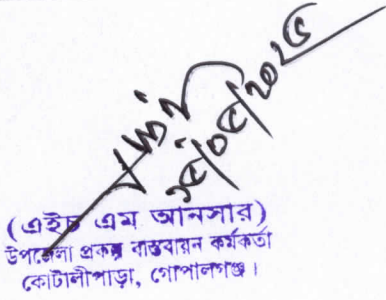 (এইচ এম আনসার)
উপজেলা প্রকল্প বাস্তবায়ন কর্মকর্তা
কোটালীপাড়া, গোপালগঞ্জ।